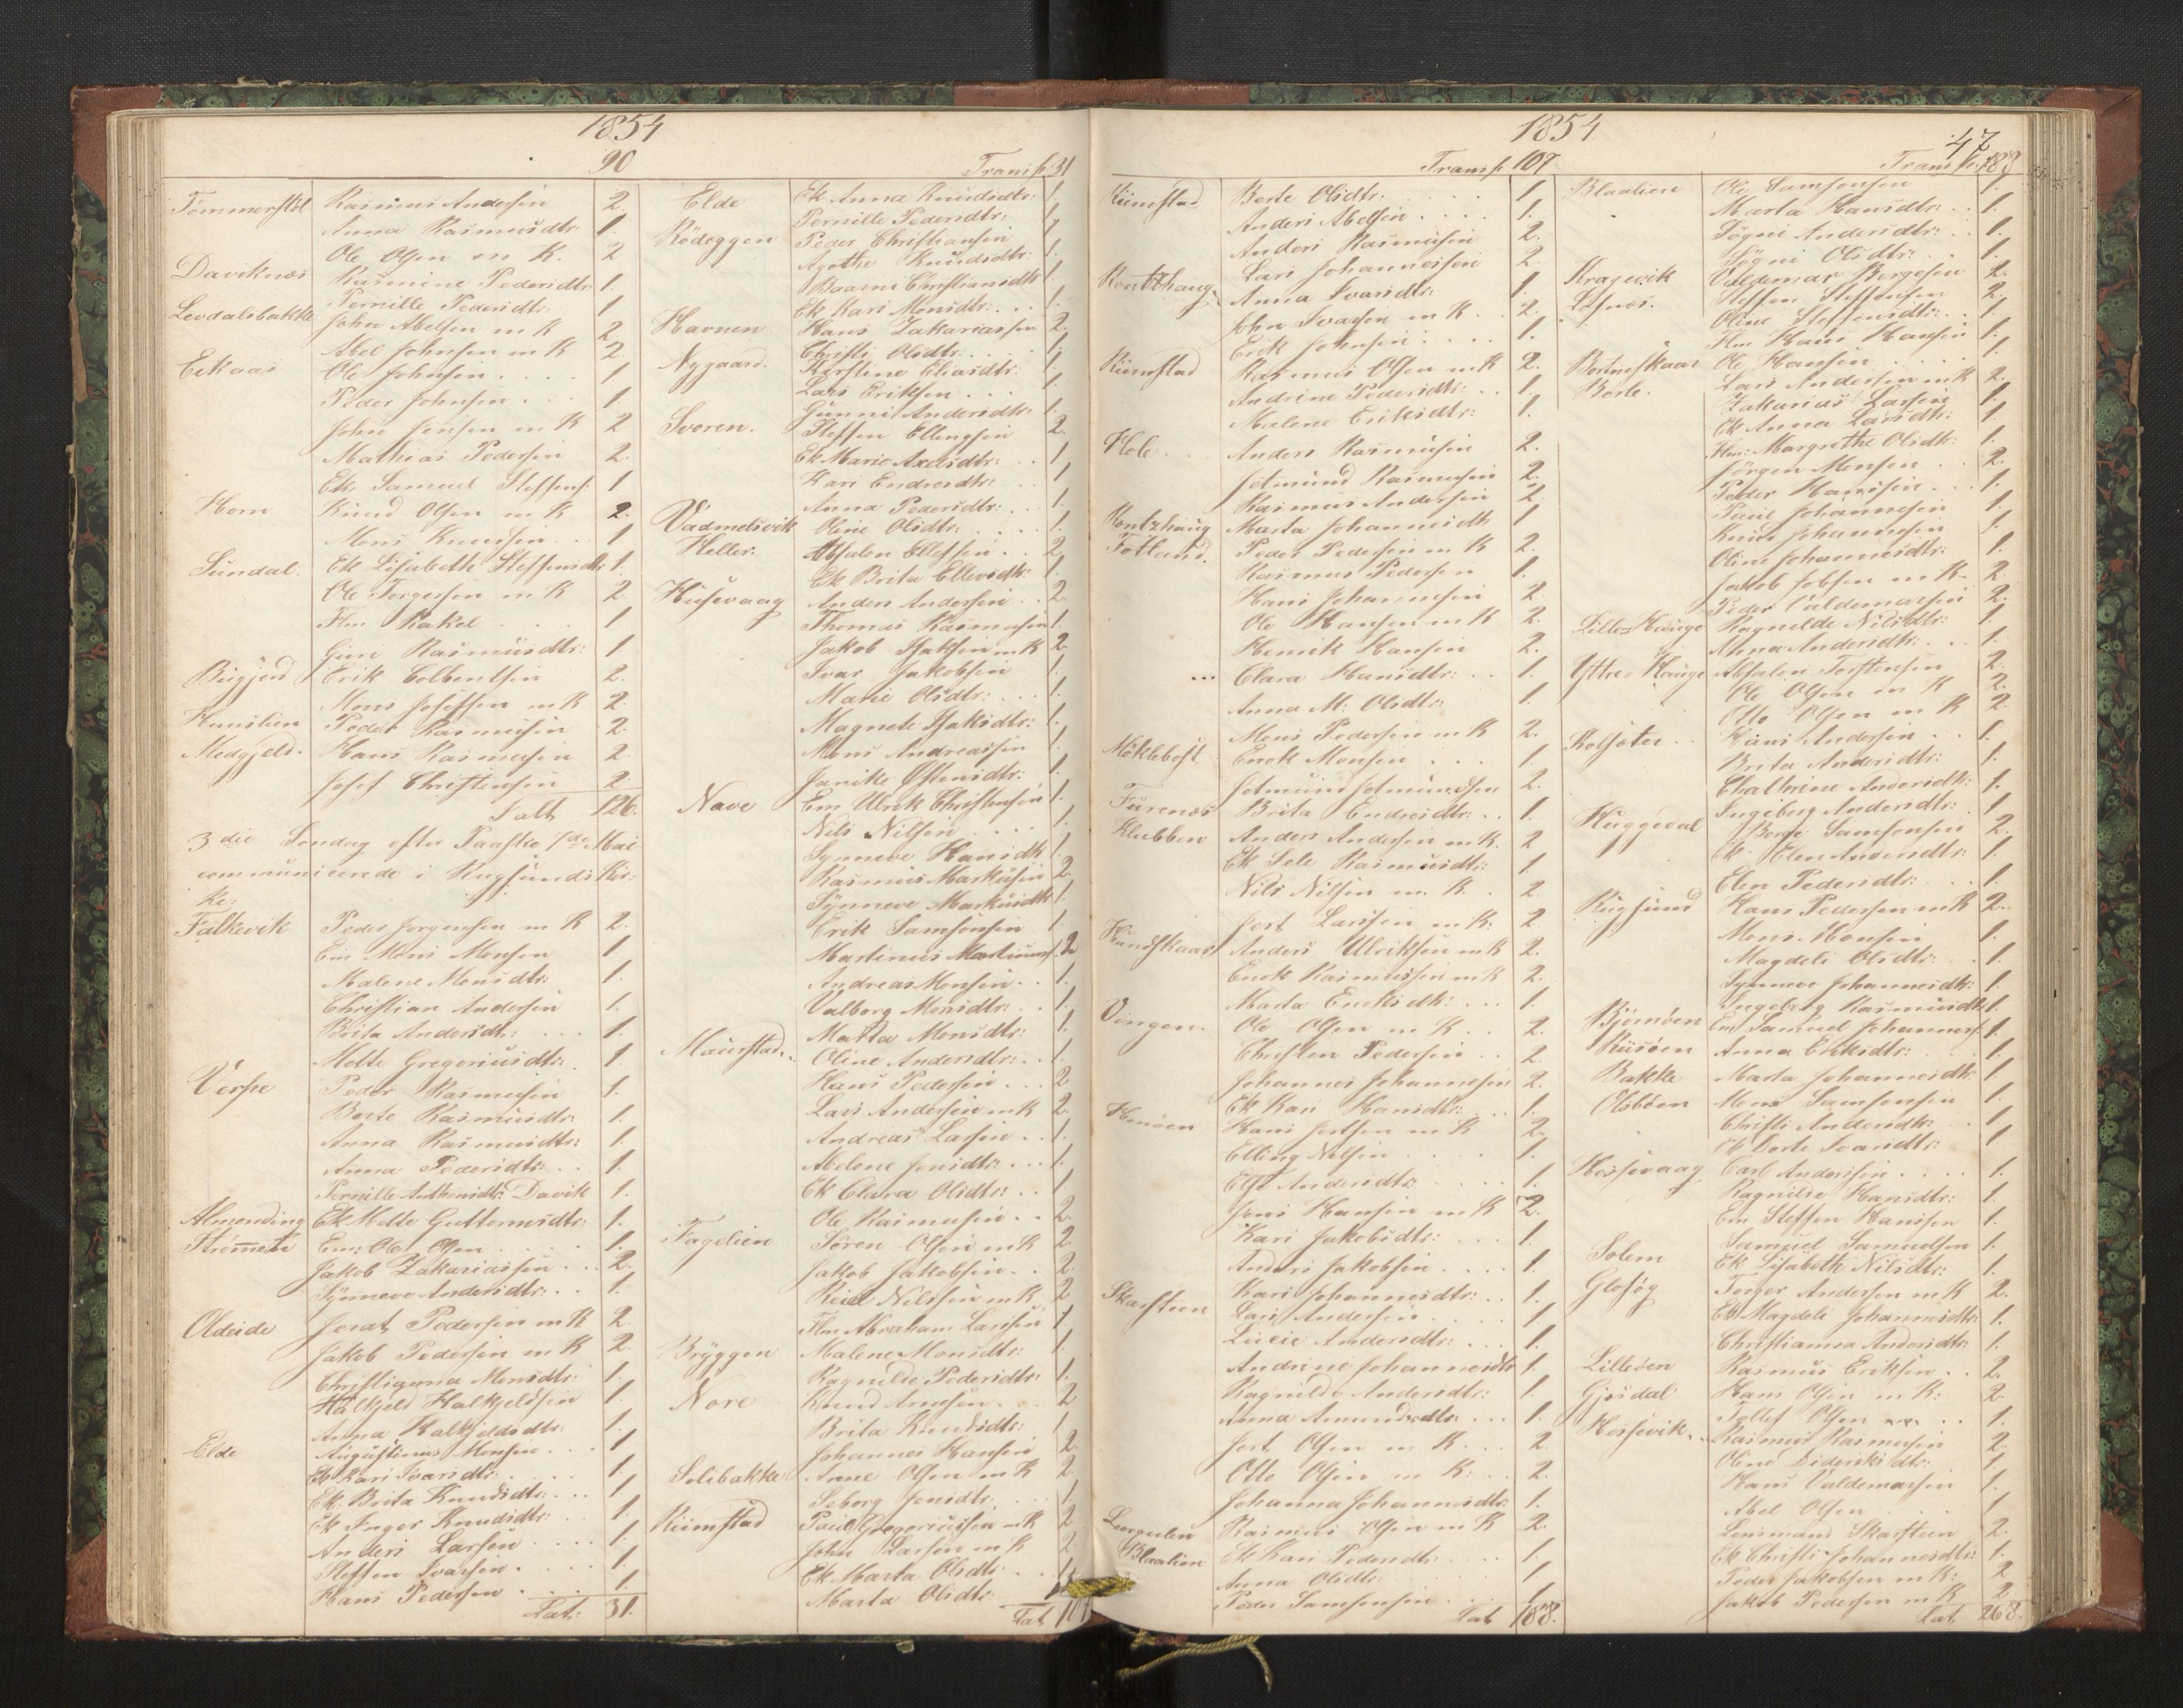 1854
90
Tömmerstöl Rasmus Andersen 2.
Anna Rasmusdtr: 1.
Ole Olsen m K. 2
Daviknæs Rasmine Pedersdtr: 1.
Levdalsbakke Pernille Pedersdtr: 1
John Abelsen m K 2
Abel Johnsen m K 2
Eikaas Ole Johnsen .... 1
Peder Johnsen ... 1.
John Jensen m K 2
Mathias Pedersen 2.
Ek. Samuel Steffens: 1
Horn Knud Olsen m K 2.
Mons Knudsen .. 1
Sundal. Ek Lisabeth Steffensdtr 1.
Ole Torgersen m K 2.
Flm Rakel ... 1
Guri Rasmusdtr: 1.
Rugjerd Erik Colbentsen 2.
Mons Josefsen m K 2
Hunslien Peder Rasmusen 2.
Medgjeld. Hans Rasmusen 2
Josef Christensen 2.
Talt 126.
3die Søndag efter Paaske 7de Mai
communicerede i Rugsunds Kir:
ke:
Falkevik Peder Jorgensen m K 2.
Em Mons Monsen 1
Malene Monsdtr: 1.
Christian Andersen 1.
Brita Andersdtr: ... 1.
Mette Gregoriusdtr: 1.
Verpe Peder Rasmusen 1.
Berte Rasmusdtr: 1.
Anna Rasmusdtr: 1.
Anna Pedersdtr: .. 1.
Pernille Anthonsdtr: Davik 1.
Almending Ek Mette Guttormsdtr: 1.
Strömmen Em: Ole Olsen .... 1.
Jakob Zakariassen .. 2.
Synneve Andersdtr: .. 1.
Oldeide Jorat Pedersen m K 2.
Jakob Pedersen m K 2.
Christianna Monsdtr: 1.
Halkjeld Halkjeldsen 1.
Anna Halkjeldsdtr: 1.
Elde Augustinus Monsen ... 1
Ek Kari Ivarsdtr: .... 1.
Ek. Brita Knudsdtr: ... 1
Ek Inger Knudsdtr: .. 1.
Anders Larsen .... 1.
Steffen Ivarsen .... 1.
Hans Pedersen .... 1.
Lat: 31.
Transp: 31
Elde Ek Anna Knudsdtr: 1.
Pernille Pedersdtr: 1
Rödeggen Peder Christiansen 1
Agathe Knudsdtr: 1.
Baarni Christiansdtr 1
Ek Kari Monsdtr: ... 1.
Havnen Hans Zakariassen 2.
Christi Olsdtr: .... 1.
Nygaard. Kirstine Eliasdtr: 1
Lars Eriksen ... 1
Gunni Andersdtr: 1.
Svoren. Steffen Ellingsen 2.
Ek Marie Axelsdtr: .. 1
Kari Endresdtr: .. 1
Anna Pedersdtr: ... 1.
Vadmelsvik Oline Olsdtr: .... 1.
Heller: Absalon Ellefsen .. 2
Ek Brita Ellevsdtr: 1.
Husevaag Anders Andersen .. 2
Thomas Rasmusen 1.
Jakob Isaksen m K 2
Ivar Jakobsen 1.
Marie Olsdtr: ... 1.
Magnete Isaksdtr: 1.
Mons Andreassen 1.
Janike Ostensdtr: 1.
Nave Em Ulrik Christensen 1.
Nils Nilsen .... 1.
Synneve Hansdtr 1.
Rasmus Markusen 2.
Synneve Markusdtr 1.
Erik Samsonsen 1
Martinus Martinuss 2
Andreas Monsen .. 1.
Valborg Monsdtr: . 1.
Marta Monsdtr: 1.
Maurstad.. Oline Andersdtr: .. 1.
Hans Pedersen ... 2
Lars Andersen m K 2.
Andreas Larsen .. 1.
Abelone Jensdtr: ... 1.
Ek Clara Olsdtr: .. 1
Ole Rasmusen .. 2.
Fagelien Sören Olsen m K 2.
Jakob Jakobsen .. 2.
Reial Nilssen m K 2
Flm Abraham Larsen 1.
Bryggen Malene Monsdtr: 1
Ragnilde Pedersdtr: 1.
Nore Knud Arnesen .. 2
Brita Knudsdtr: 1
Johannes Hansen 2.
Solibakke Arne Olsen m K 2
Seborg Jensdtr: ... 1.
Rimstad Paul Gregoriussen m K 2
John Larsen m K 2
Ek Marta Olsdtr: .. 1.
Marta Olsdtr: ...
Lat 107
1854
47
Transp: 107.
Rimstad Berte Olsdtr: .... 1.
Anders Abelsen .... 1.
Anders Rasmusen 2.
Lars Johannessen 2.
Rontzhaug Anna Ivarsdtr: 1.
John Ivarsen m K .. 2.
Enok Johnsen .... 1.
Rimstad Rasmus Olsen m K 2.
Andrine Pedersdtr: .. 1.
Malene Eriksdtr: 1.
Hole ... Anders Rasmusen 2.
Jetmund Rasmusen 2.
Rasmus Andersen 2
Rontzhaug Marta Johannesdtr 1
Totland. Peder Pedersen m K 2.
Rasmus Pedersen 1.
Hans Johannesen 2
Ole Hansen m K 2.
Henrik Hansen 2.
... Clara Hansdtr: .. 1.
Anna M: Olsdtr: 1.
Mons Pedersen m K 2.
Möklebost Enok Monsen ... 1.
Jetmund Jetmundsen 2.
Furenæs Brita Endresdtr: .. 1.
Klubben Anders Andersen m K. 2
Ek Sele Rasmusdtr: 1
Nils Nilsen m. K . 2
Jert Larssen m K: 2
Hundskaar Anders Ulriksen m K 2.
Enok Rasmussen m K 2.
Marta Enoksdtr: ... 1.
Vingen. Ole Olsen m K .. 2.
Christen Pedersen .. 2.
Johannes Johannesen 2.
Ek Kari Hansdtr: .. 1.
Henöen Hans Jertsen m K 2.
Elling Nilsen .... 1.
Elst Andersdtr: .... 1.
Jens Hansen m K 2.
Kari Jakobsdtr: ... 1.
Anders Jakobsen .... 1.
Skarsteen Kari Johannesdtr: .. 1.
Lars Andersen .... 1
Lucie Andersdtr: ... 1.
Andrine Johannesdtr 1.
Ragnilde Andersdtr: 1.
Anna Amundsdtr: ... 1.
Jert Olsen m K ... 2.
Otto Olsen m K: .. 2.
Johanna Johannesdtr: 1.
Rasmus Olsen m K 2.
Blaalien Ek Kari Pedersdtr: .... 1.
Anna Olsdtr: 1
Peder Samsonsen ... 1.
Lat 188.
Transp: 188
Blaalien Ole Samsonsen 1.
Marta Hansdtr: .. 1.
Sögni Andersdtr: .. 1.
Sögni Olsdtr: .. 1.
Kragevik Valdemar Bergesen 2.
Lesnæs. Steffen Steffensen 2.
Oline Steffensdtr: .. 1.
Flm Hans Hansen 1.
Bortneskaar Ole Hansen .... 1
Borte. Lars Andersen m K 2.
Zakarias Larsen 1.
Ek Anna Larsdtr: 1
Flm: Margrethe Olsdtr: 1.
Jörgen Monsen .. 2.
Peder Hanssen ... 1.
Paul Johannesen 1
Knud Johannesen 1.
Oline Johannesdtr: 1.
Jakob Jobsen m K 2.
Peder Valdemarsen 2.
Lille Hauge Ragnilde Nilsdtr: 1.
Anna Andersdtr: ... 1.
Yttre Hauge Absalon Torstensen 2.
Ole Olsen m K 2.
Otto Olsen m K 2.
Kolsæter .. Hans Andersen .. 1.
Brita Andersdtr: 1.
Chathrine Andersdtr: 1.
Ingeborg Andersdtr: 1
Huggedal Berge Samsonsen 2.
Ek Elen Andersdtr: 1.
Elen Pedersdtr: ... 1.
Rugsund Hans Pedersen m K 2.
Mons. Hansen 1.
Magdeli Olsdtr: .. 1.
Synneve Johannesdtr: 1.
Ingeborg Rasmusdtr 1.
Björnöen Em Samuel Johanness: 1.
Risöen Anna Eriksdtr: .. 1.
Bakke Marta Johannesdtr 1.
Olsböen Mons Samsonsen 1
Christi Andersdtr: . 1
Ek Dorte Ivarsdtr: 1
Hessevaag Carl Anderssen .... 1.
Ragnilde Hansdtr: 1.
Em Steffen Hanssen 1.
Samuel Samuelsen 1.
Solem Ek Lisabeth Nilsdtr: 1.
Glosög Torger Andersen m K 2.
Ek Magdeli Johannesdtr: 1.
Christianna Andersdtr: 1.
Lilleöen Rasmus Eriksen .. 2.
Gjesdal Hans Olsen m K: 2
Tollef Olsen ... 1.
Hessevik... Rasmus Rasmusen 2.
Oline Dideriksdtr: 1.
Hans Valdemarsen 1
Abel Olsen ... 1
Lensmand Skarsteen 2.
Ek Christi Johannesdtr: 1.
Peder Jakobsen m K: 2
Jakob Pedersen m K 2.
Lat 268.